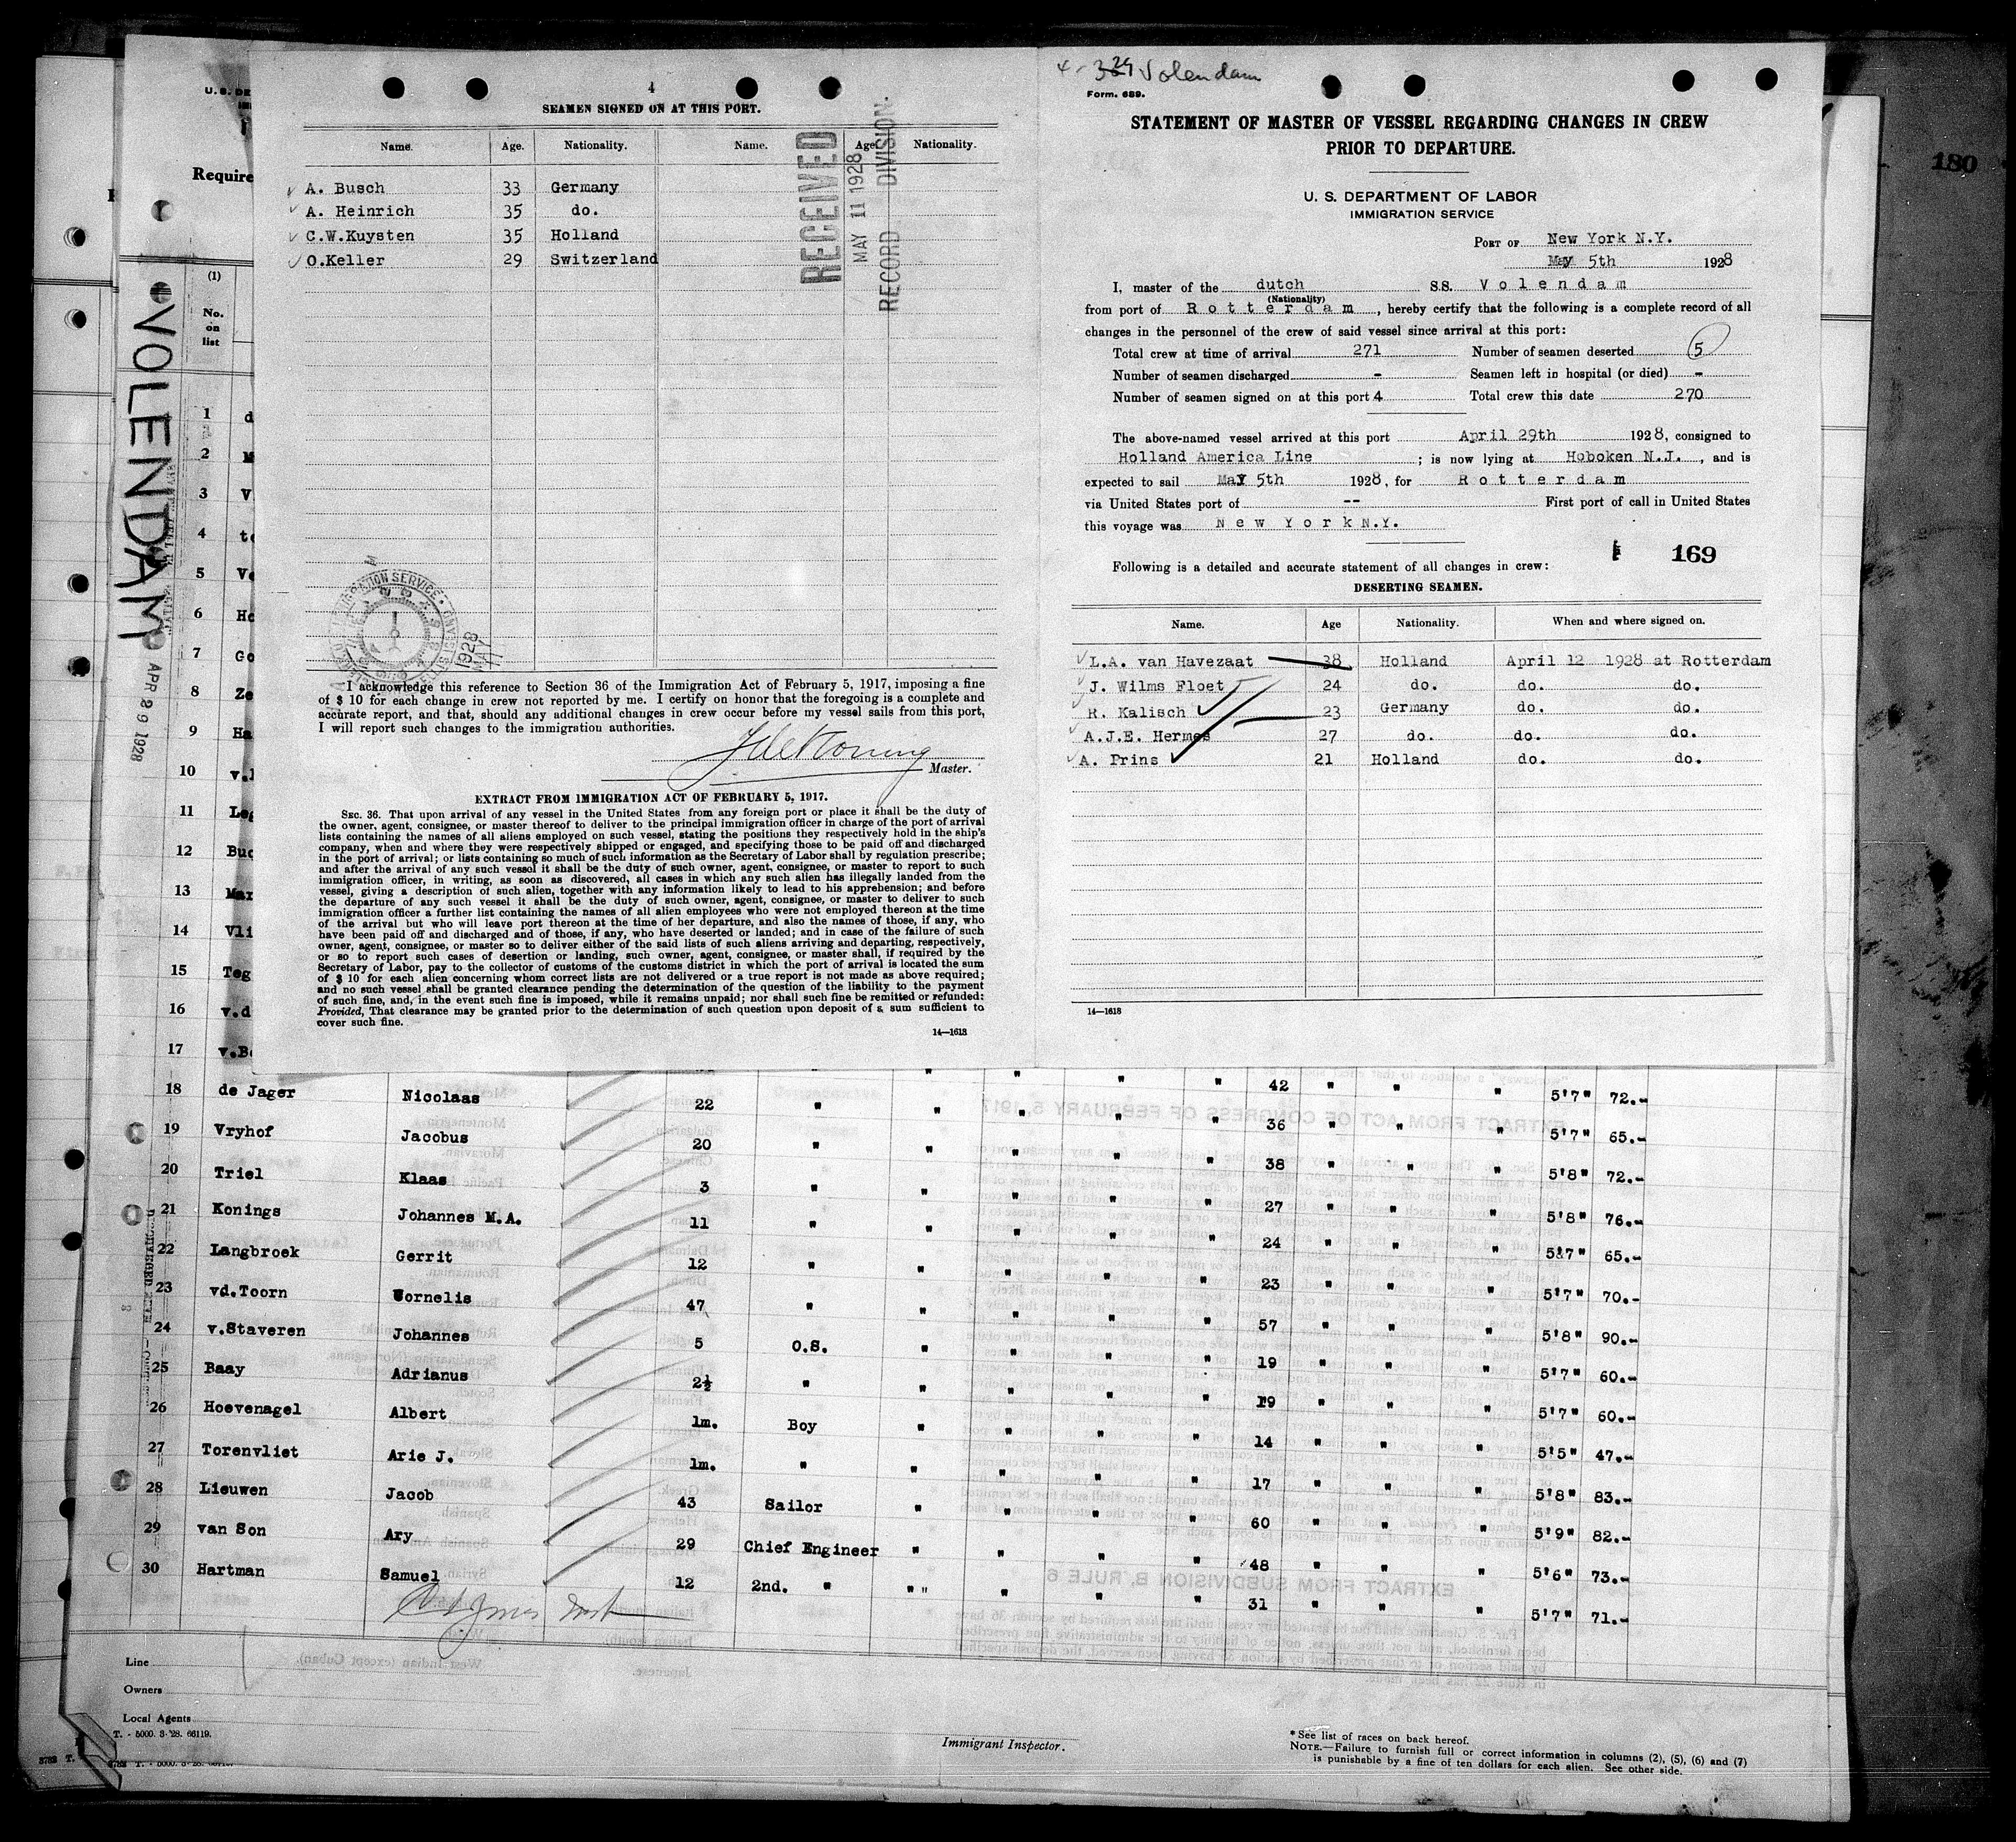 4
SEAMEN SIGNED ON AT THIS PORT.
Name. Age. Nationality. Name. Age Nationality.
A. Busch 33 Germany
A. Heinrich 35 do.
C.W.Kuysten 35 Holland
O.Keller 29 Switzerland
RECEIVED
MAY 11 1928
RECORD DIVISION.
1928
MAY
I acknowledge this reference to Section 36 of the Immigration Act of February 5, 1917, imposing a fine
of $ 10 for each change in crew not reported by me. I certify on honor that the foregoing is a complete and
accurate report, and that, should any additional changes in crew occur before my vessel sails from this port,
I will report such changes to the immigration authorities.
Master.
EXTRACT FROM IMMIGRATION ACT OF FEBRUARY 5, 1917.
SEC. 36. That upon arrival of any vessel in the United States from any foreign port or place it shall be the duty of
the owner, agent, consignee, or master thereof to deliver to the principal immigration officer in charge of the port of arrival
lists containing the names of all aliens employed on such vessel, stating the positions they respectively hold in the ship's
company, when and where they were respectively shipped or engaged, and specifying those to be paid off and discharged
in the port of arrival; or lists containing so much of such information as the Secretary of Labor shall by regulation prescribe;
and after the arrival of any such vessel it shall be the duty of such owner, agent, consignee, or master to report to such
immigration officer, in writing, as soon as discovered, all cases in which any such alien has illegally landed from the
vessel, giving a description of such alien, together with any information likely to lead to his apprehension; and before
the departure of any such vessel it shall be the duty of such owner, agent, consignee, or master to deliver to such
immigration officer a further list containing the names of all alien employees who were not employed thereon at the time
of the arrival but who will leave port thereon at the time of her departure, and also the names of those, if any, who
have been paid off and discharged and of those, if any, who have deserted or landed; and in case of the failure of such
owner, agent, consignee, or master so to deliver either of the said lists of such aliens arriving and departing, respectively,
or so to report such cases of desertion or landing, such owner, agent, consignee, or master shall, if required by the
Secretary of Labor, pay to the collector of customs of the customs district in which the port of arrival is located the sum
of $ 10 for each alien concerning whom correct lists are not delivered or a true report is not made as above required;
and no such vessel shall be granted clearance pending the determination of the question of the liability to the payment
of such fine, and, in the event such fine is imposed, while it remains unpaid; nor shall such fine be remitted or refunded:
Provided, That clearance may be granted prior to the determination of such question upon deposit of a sum sufficient to
cover such fine.
14—1618
Volendam
Form. 689.
STATEMENT OF MASTER OF VESSEL REGARDING CHANGES IN CREW
PRIOR TO DEPARTURE.
U. S. DEPARTMENT OF LABOR
IMMIGRATION SERVICE
PORT OF New York N.Y.
May 5th 1928
I, master of the dutch S.S. Volendam
(Nationality)
from port of Rotterdam, hereby certify that the following is a complete record of all
changes in the personnel of the crew of said vessel since arrival at this port:
Total crew at time of arrival 271 Number of seamen deserted 5
Number of seamen discharged - Seamen left in hospital (or died) -
Number of seamen signed on at this port 4 Total crew this date 270
The above-named vessel arrived at this port April 29th 1928, consigned to
Holland America Line; is now lying at Hoboken N.J., and is
expected to sail May 5th 1928, for Rotterdam
via United States port of -- First port of call in United States
this voyage was New York N.Y.
169
Following is a detailed and accurate statement of all changes in crew:
DESERTING SEAMEN.
Name. Age Nationality. When and where signed on.
L.A. van Havezaat 38 Holland April 12 1928 at Rotterdam
J. Wilms Floet 24 do. do. do.
R. Kalisch 23 Germany do. do.
A.J.E. Hermes 27 do. do. do.
A. Prins 21 Holland do. do.
14—1618
180
VOLENDAM
APR 29 1928
U. S. DE
Require
(1)
No.
on
list
1 d
2 M
3 V
4 te
5 Ve
6 Ho
7 Go
8 Ze
9 Ha
10 v.
11 Leg
12 Buc
13 Mar
14 Vli
15 Teg
16 v.d
17 v.B
18 de Jager Nicolaas 22 " " " " " 42 " " " 5'7" 72.-
19 Vryhof Jacobus 20 " " " " " 36 " " " 5'7" 65.-
20 Triel Klaas 3 " " " " " 38 " " " 5'8" 72.-
21 Konings Johannes M.A. 11 " " " " " 27 " " " 5'8" 76.-
22 Langbroek Gerrit 12 " " " " " 24 " " " 5'7" 65.-
23 vd.Toorn Cornelis 47 " " " " " 23 " " " 5'7" 70.-
24 v.Staveren Johannes 5 O.S. " " " " 57 " " " 5'8" 90.-
25 Baay Adrianus 2½ " " " " " 19 " " " 5'7" 60.-
26 Hoevenagel Albert 1m. Boy " " " " 19 " " " 5'7" 60.-
27 Torenvliet Arie J. 1m. " " " " " 14 " " " 5'5" 47.-
28 Lieuwen Jacob 43 Sailor " " " " 17 " " " 5'8" 83.-
29 van Son Ary 29 Chief Engineer " " " " 60 " " " 5'9" 82.-
30 Hartman Samuel 12 2nd. " " " " " 48 " " " 5'6" 73.-
31 " " " 5'7" 71.-
Line
Owners
Local Agents
T. - 5000. 3-'28. 66119.
Immigrant Inspector.
* See list of races on back hereof.
NOTE.—Failure to furnish full or correct information in columns (2), (5), (6) and (7)
is punishable by a fine of ten dollars for each alien. See other side.